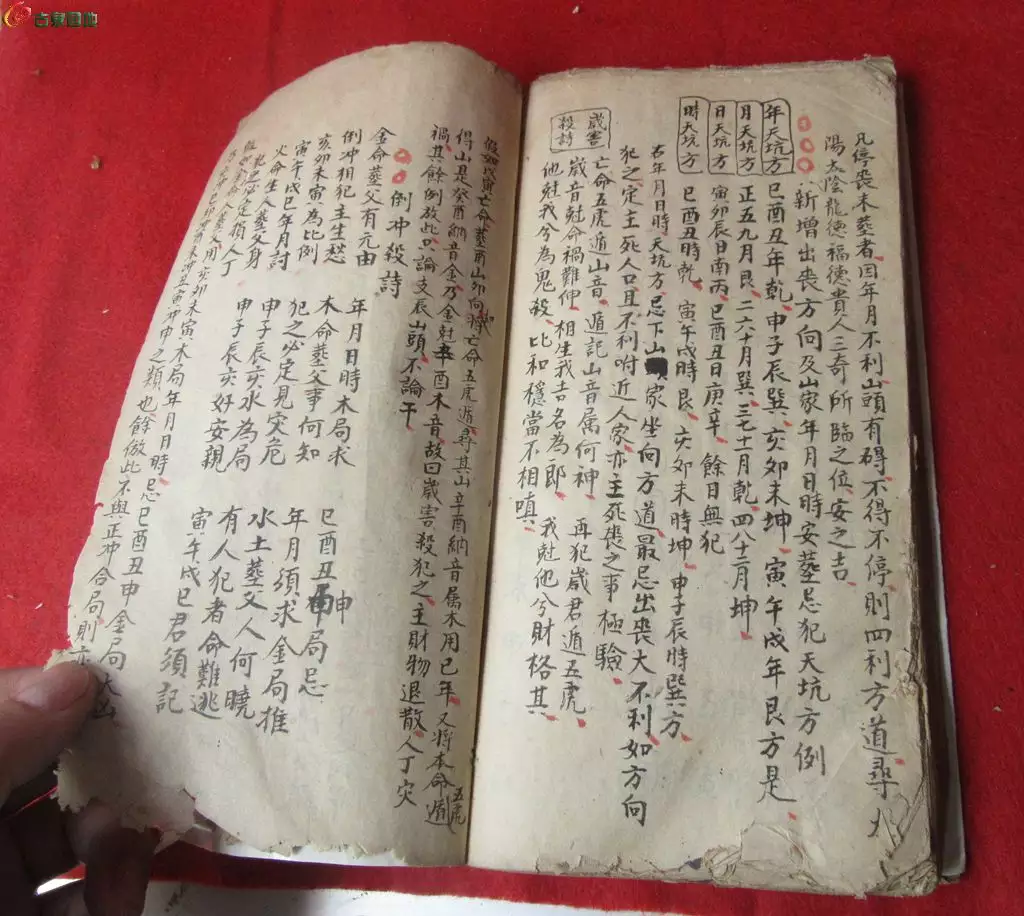 古泉園地
凡停喪未葬者因年月不利山頭有碍不得不停則四利方道尋太
陽太陰龍德福德貴人三奇所臨之位安之吉
新增出喪方向及山家年月日時安葬忌犯天坑方例
年天坑方 巳酉丑年乾 申子辰巽 亥卯未坤 寅午戌年艮方是
月天坑方 正五九月艮 二六十月巽 三七十一月乾 四八十二月坤
日天坑方 寅卯辰日南丙 巳酉丑日庚辛 餘日無犯
時天坑方 巳酉丑時乾 寅午戌時艮 亥卯未時坤 申子辰時巽方
右年月日時天坑方忌下山家坐向方道最忌出喪大不利如方向
犯之定主死人口且不利附近人家亦主死喪之事極驗
歲害殺詩 亡命五虎遁山音 遁記山音属何神 再犯歲君遁五虎
歲音尅命禍難伸 相生我吉名為郎 我尅他兮財格其
他尅我兮為鬼殺 比和穩當不相嗔
假如戊寅亡命葬酉山卯向將亡命五虎遁尋其山辛酉納音属木用巳年又將本命遁五虎
得山是癸酉納音金乃金尅辛酉木音故曰歲害殺犯之主財物退散人丁灾
禍其餘例放此只論支辰山頭不論干
倒冲殺詩
金命葬父有元由 年月日時木局求 巳酉丑申局忌
倒冲相犯主生愁 木命葬父事何知 年月須求金局推
亥卯未寅為比例 犯之必定見灾危 水土葬父人何曉
寅午戌巳年月討 申子辰亥水為局 有人犯者命難逃
火命生人葬父身 申子辰亥好安親 寅午戌巳君須記
犯之必定損人丁
假如金命人葬父用亥卯未寅木局年月日時忌巳酉丑申金局大凶
冲寅冲申之類也餘倣此不與正冲合局則亦